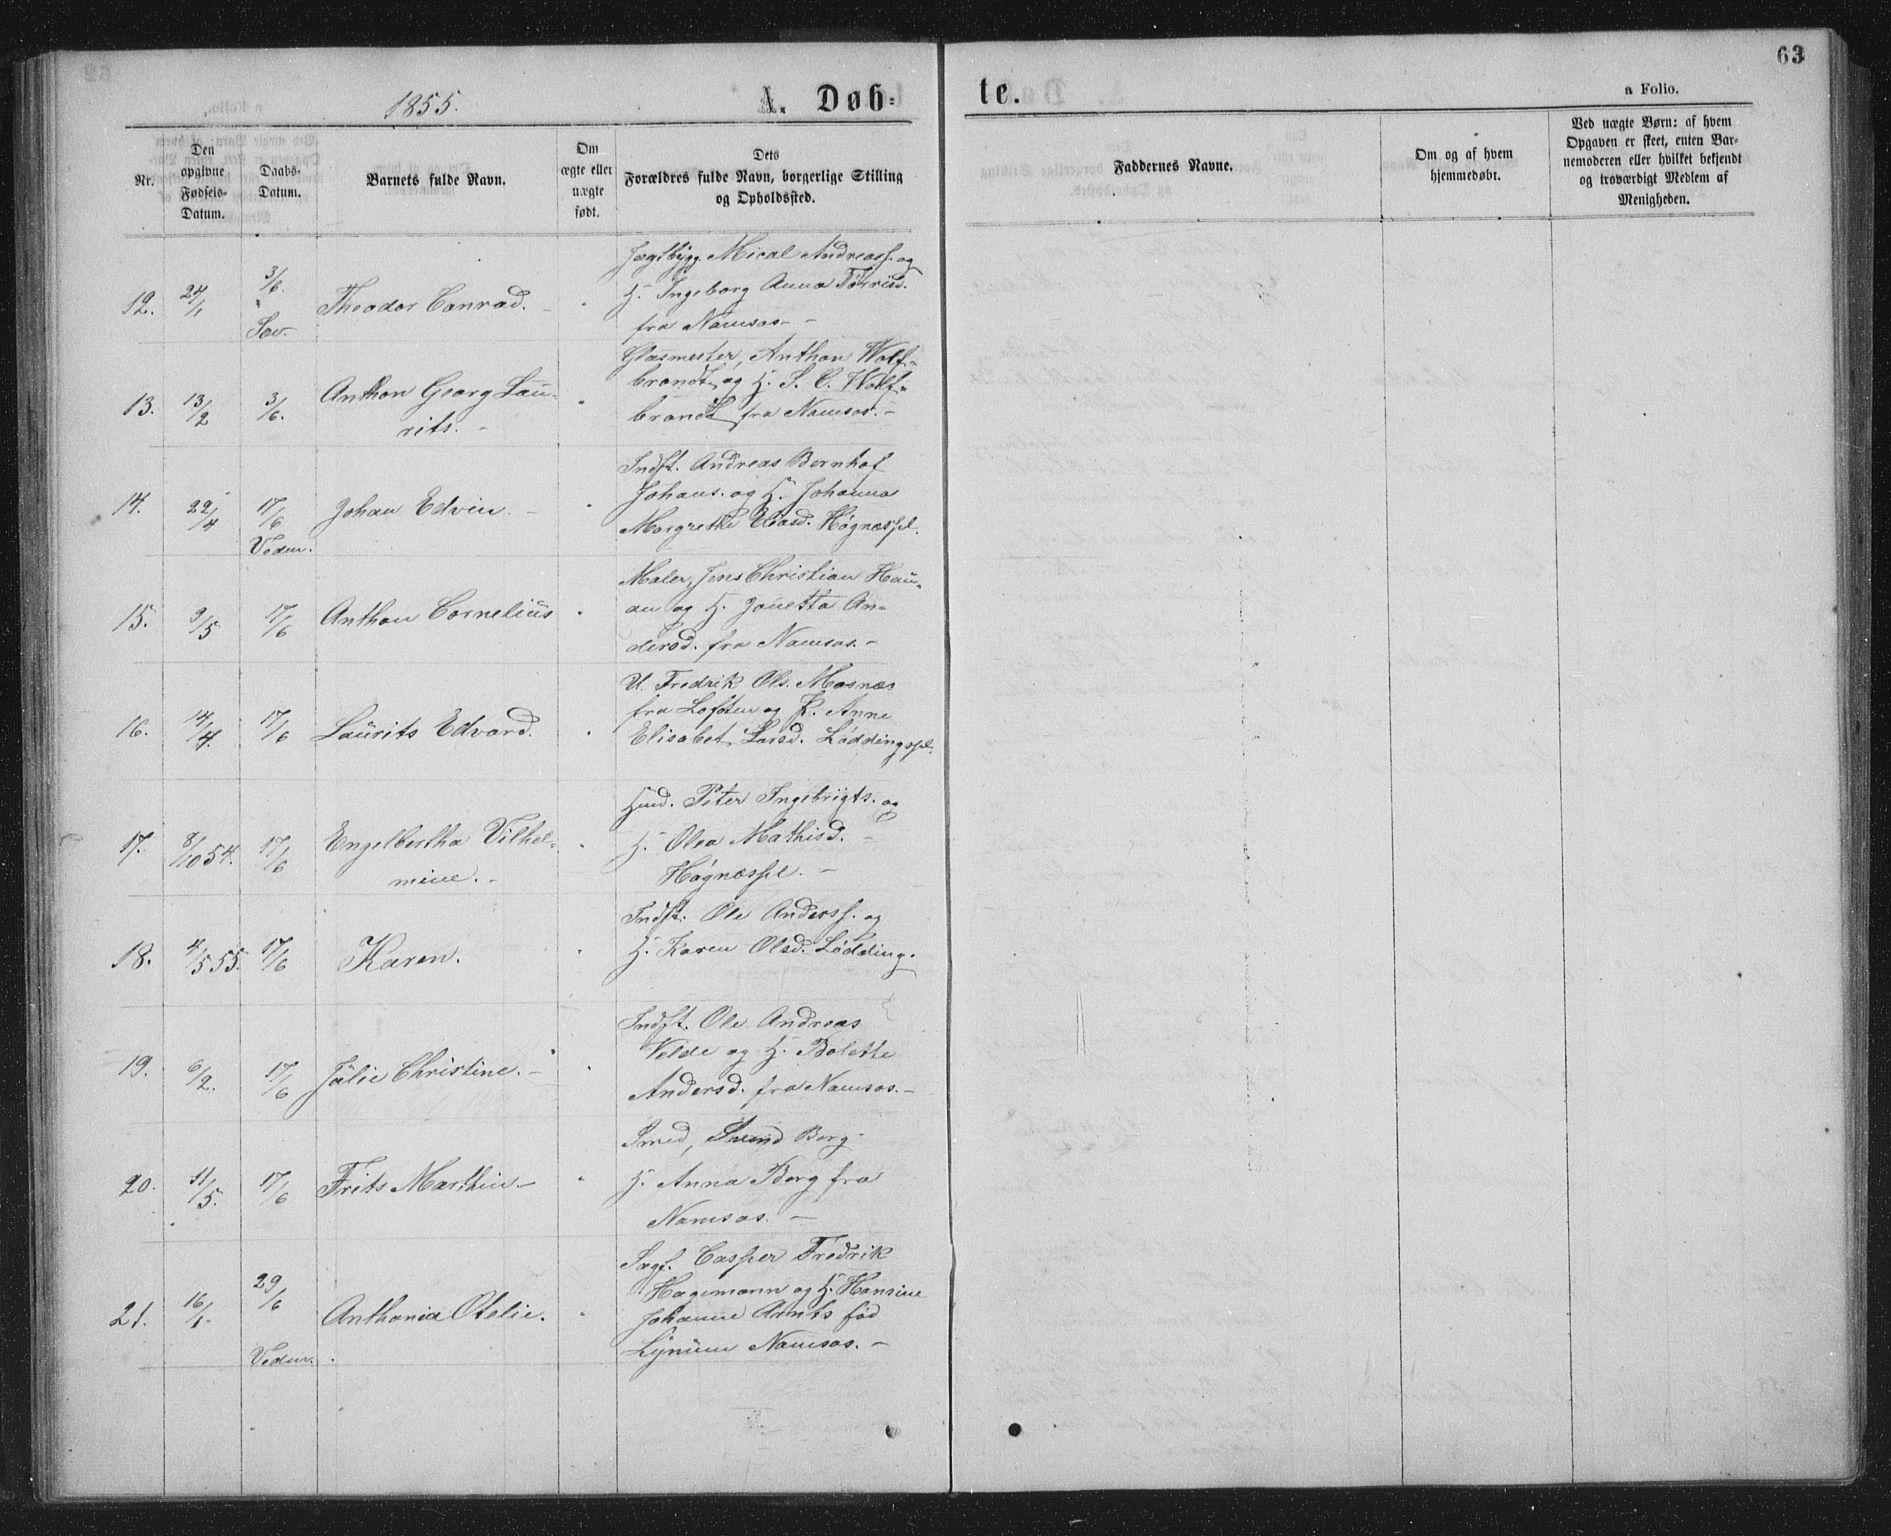 63
1855.
A. Døb-
te.
a Folio.
Nr.
Den
opgivne
Fødsels-
Datum.
Daabs-
Datum.
Barnets fulde Navn.
Om
ægte eller
uægte
født.
Dets
Forældres fulde Navn, borgerlige Stilling
og Opholdssted.
Faddernes Navne.
Om og af hvem
hjemmedøbt.
Ved uægte Børn: af hvem
Opgaven er skeet, enten Bar-
nemoderen eller hvilket bekjendt
og troværdigt Medlem af
Menigheden.
12. 24/1 3/6. Sav. Theodor Conrad. -
Jægtbygg. Mical Andreass. og
H. Ingeborg Anna Tørrisd.
fra Namsos. -
13. 13/2 3/6. Anthon Georg Lau-
rits. -
Glasmester, Anthon Wolf-
brandt, og H. S. C. Wolf-
brandt fra Namsos. -
14. 22/4 17/6 Vedm. Johan Edvin. -
Indst. Andreas Bernhof
Johans. og H. Johanna
Margrethe Eliasd. Høgnæspl.
15. 9/5 17/6 Anthon Cornelius
Maler, Jens Christian Hau-
an og H. Jonetta An-
dersd. fra Namsos. -
16. 14/4. 17/6 Laurits Edvard.
U. Fredrik Ols. Mosnæs
fra Lofoten og P. Anne
Elisabet Larsd. Løddingspl.
17. 8/10 54. 17/6 Engelbertha Vilhel-
mine. -
Hmd. Peter Ingebrigts. og
H. Olea Mathisd. -
Høgnæspl. -
18. 4/5 55. 17/6 Karen.
Indst. Ole Anderss. og
H. Karen Olsd. Lødding.
19. 6/2. 17/6 Julie Christine. -
Indst. Ole Andreas
Velde og H. Bolette
Andersd. fra Namsos. -
20. 11/5. 17/6 Frits Marthin -
Smed, Svend Berg
H. Anna Berg fra
Namsos. -
21. 16/1. 29/6 Vedm. Anthonia Otelie.
Sagf. Casper Fredrik
Hagemann og H. Hansine
Johanne Arnts fød
Lynum Namsos. -